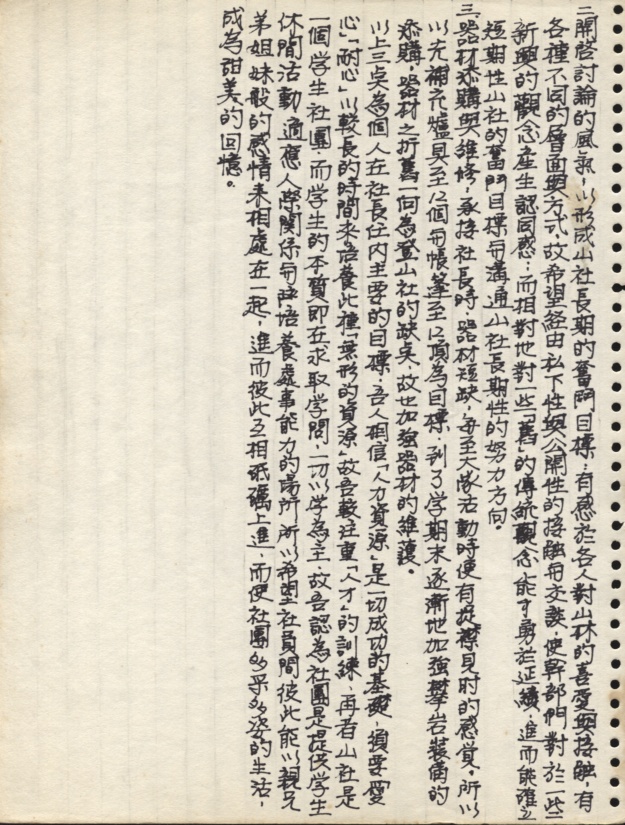 二、開啓討論的風氣,以形成山社長期的奮鬥目標:有感於各人對山林的喜愛與接觸,有
各種不同的層面與方式,故希望經由私下性與公開性的接觸與交談,使幹部們對於一些
新興的觀念產生認同感;而相對地對一些「舊」的傳統觀念能才勇於延續,進而能確立
短期性山社的奮鬥目標與溝通山社長期性的努力方向。
三、器材添購與維修:承接社長時,器材短缺,每至大隊活動時便有捉襟見肘的感覺。所以
以先補充爐具至12個與帳篷至12頂為目標,到了學期末逐漸地加強攀岩裝備的
添購,器材之折舊一向為登山社的缺点,故也加強器材的維護。
以上三点為個人在社長任內主要的目標,吾人相信「人力資源」是一切成功的基礎,須要愛
心「耐心」以較長的時間來培養此種「無形的資源」故吾較注重「人才」的訓練,再者山社是
一個学生社團,而学生的本質即在求取学問,一切以学為主,故吾認為社團是提供学生
休閒活動,適應人際關係與培養處事能力的場所,所以希望社員間彼此能以親兄
弟姐妹般的感情來相處在一起,進而彼此互相砥礪上進,而使社團多采多姿的生活,
成為甜美的回憶。